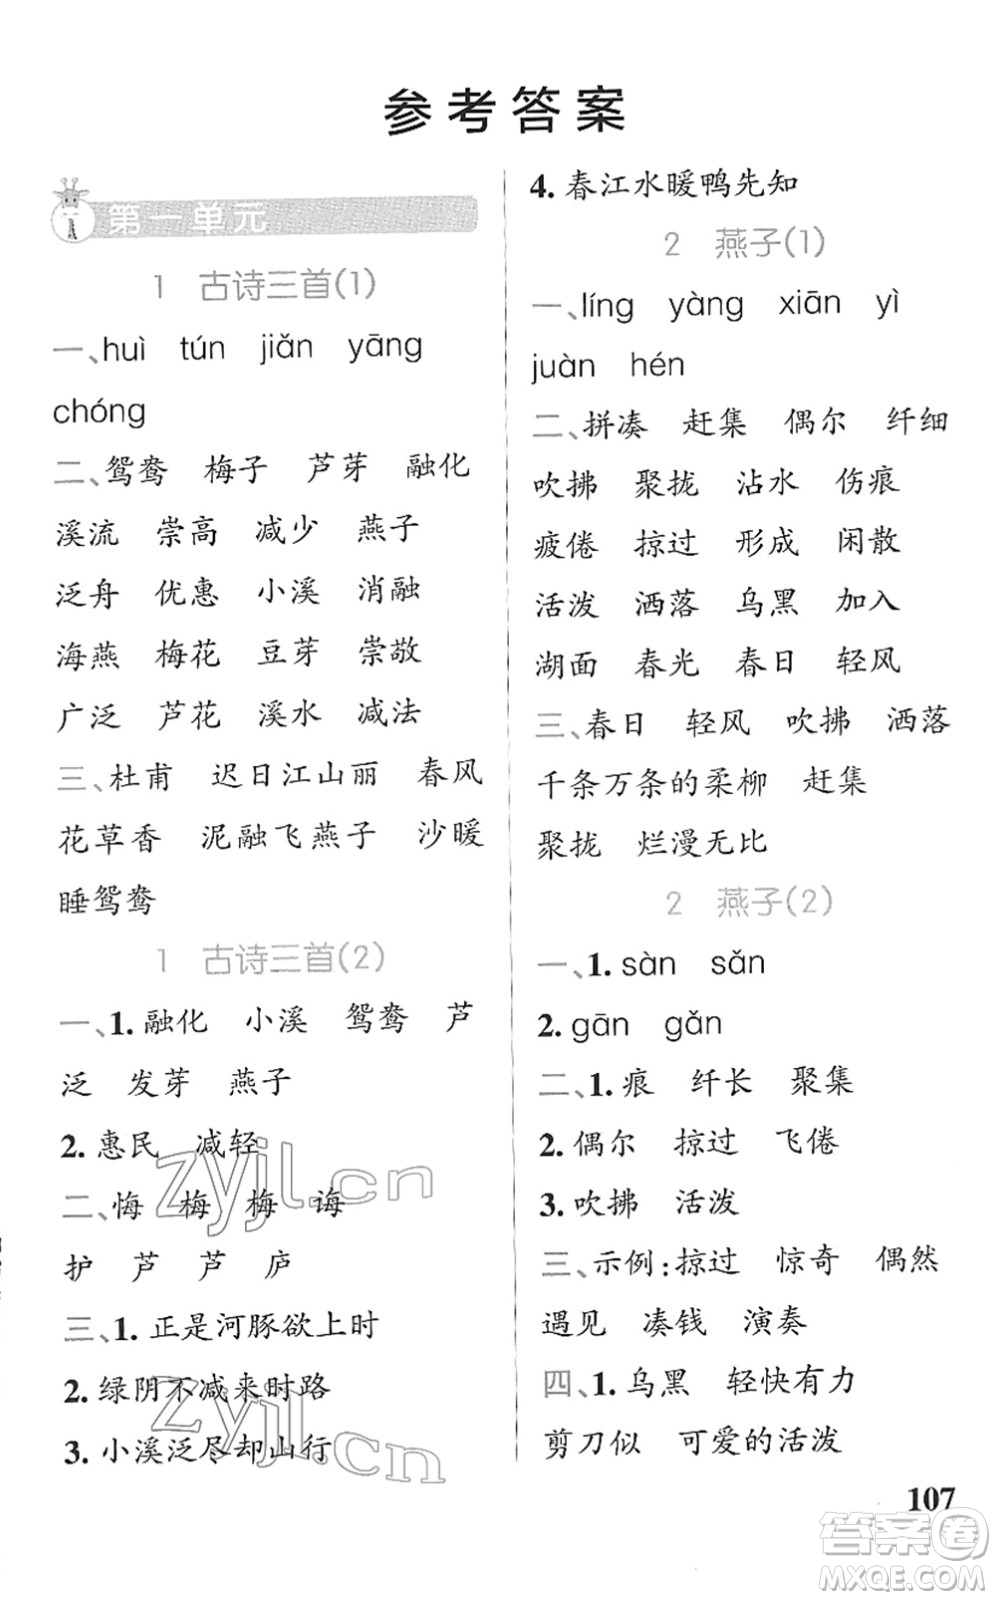 参考答案
第一单元
1 古诗三首(1)
一、huì tún jiǎn yāng
chóng
二、鸳鸯 梅子 芦芽 融化
溪流 崇高 减少 燕子
泛舟 优惠 小溪 消融
海燕 梅花 豆芽 崇敬
广泛 芦花 溪水 减法
三、杜甫 迟日江山丽 春风
花草香 泥融飞燕子 沙暖
睡鸳鸯
1 古诗三首(2)
一、1.融化 小溪 鸳鸯 芦
泛 发芽 燕子
2.惠民 减轻
二、悔 梅 梅 诲
护 芦 芦 庐
三、1.正是河豚欲上时
2.绿阴不减来时路
3.小溪泛尽却山行
4.春江水暖鸭先知
2 燕子(1)
一、líng yàng xiān yì
juàn hén
二、拼凑 赶集 偶尔 纤细
吹拂 聚拢 沾水 伤痕
疲倦 掠过 形成 闲散
活泼 洒落 乌黑 加入
湖面 春光 春日 轻风
三、春日 轻风 吹拂 洒落
千条万条的柔柳 赶集
聚拢 烂漫无比
2 燕子(2)
一、1.sàn sǎn
2.gān gǎn
二、1.痕 纤长 聚集
2.偶尔 掠过 飞倦
3.吹拂 活泼
三、示例:掠过 惊奇 偶然
遇见 凑钱 演奏
四、1.乌黑 轻快有力
剪刀似 可爱的活泼
107
zyjl.cn
zyjl.cn
答案卷
MXQE.COM